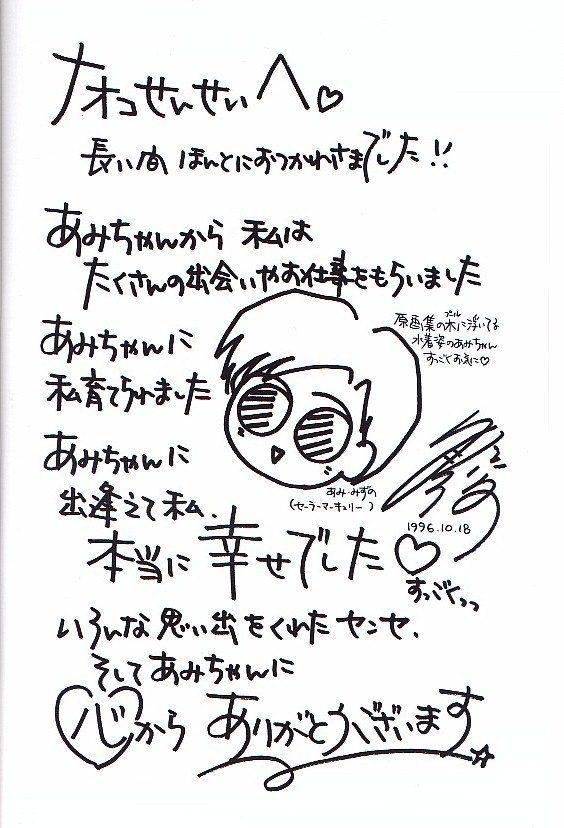 ナオコせんせいへ♡
長い間 ほんとにおつかれさまでした!!
あみちゃんから 私は
たくさんの出会いやお仕事をもらいました
あみちゃんに
私育てられました
あみちゃんに
出逢えて私.
本当に幸せでした♡
すっごくっっ
いろんな思い出をくれたセンセ.
そしてあみちゃんに
心から ありがとうございます☆
原画集の水に浮いてる
プール
水着姿のあみちゃん
すっごくお気に♡
あみ・みずの
(セーラーマーキュリー)
1996.10.18